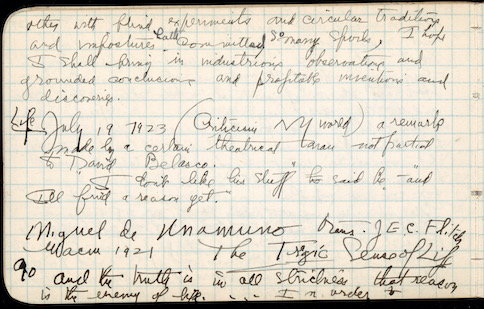 other with blind experiments and circular traditions
and impostures hath committed so many spoils, I hope
I shall bring in industrious observations and
grounded conclusions and profitable inventions and
discoveries.
Life July 19 1923 (Criticism NY World) a remark
made by a certain theatrical man not partial
to David Belasco.
"I don't like his stuff" so said he - "and
I'll find a reason yet."
Miguel de Unamuno trans. J E C. Flitch
Macm 1921 The Tragic Sense of Life
90 and the truth is in all strictness that reason
is the enemy of life. . . . I n order to